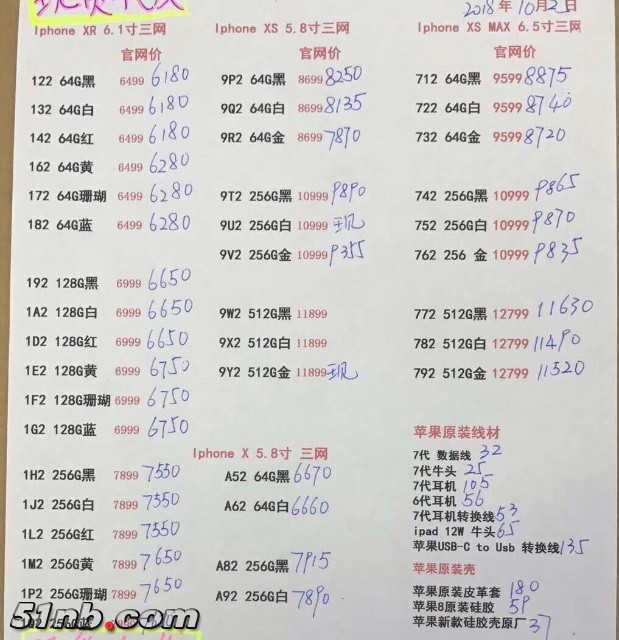 2018年10月2日
Iphone XR 6.1寸三网
官网价
122 64G黑 6499 6180
132 64G白 6499 6180
142 64G红 6499 6180
162 64G黄 6499 6280
172 64G珊瑚 6499 6280
182 64G蓝 6499 6280
192 128G黑 6999 6650
1A2 128G白 6999 6650
1D2 128G红 6999 6650
1E2 128G黄 6999 6750
1F2 128G珊瑚 6999 6750
1G2 128G蓝 6999 6750
1H2 256G黑 7899 7550
1J2 256G白 7899 7550
1L2 256G红 7899 7550
1M2 256G黄 7899 7650
1P2 256G珊瑚 7899 7650
256G蓝
Iphone XS 5.8寸三网
官网价
9P2 64G黑 8699 8250
9Q2 64G白 8699 8135
9R2 64G金 8699 7870
9T2 256G黑 10999 9890
9U2 256G白 10999 现
9V2 256G金 10999 9355
9W2 512G黑 11899
9X2 512G白 11899
9Y2 512G金 11899 现
Iphone X 5.8寸 三网
A52 64G黑 6670
A62 64G白 6660
A82 256G黑 7915
A92 256G白 7890
Iphone XS MAX 6.5寸三网
官网价
712 64G黑 9599 8875
722 64G白 9599 8740
732 64G金 9599 8720
742 256G黑 10999 9865
752 256G白 10999 9870
762 256 金 10999 9835
772 512G黑 12799 11630
782 512G白 12799 11490
792 512G金 12799 11520
苹果原装线材
7代 数据线 32
7代牛头 25
7代耳机 105
6代耳机 56
7代耳机转换线 53
ipad 12W 牛头 65
苹果USB-C to Usb 转换线 135
苹果原装壳
苹果原装皮革套 180
苹果8原装硅胶 59
苹果新款硅胶壳原厂 37
51nb.com